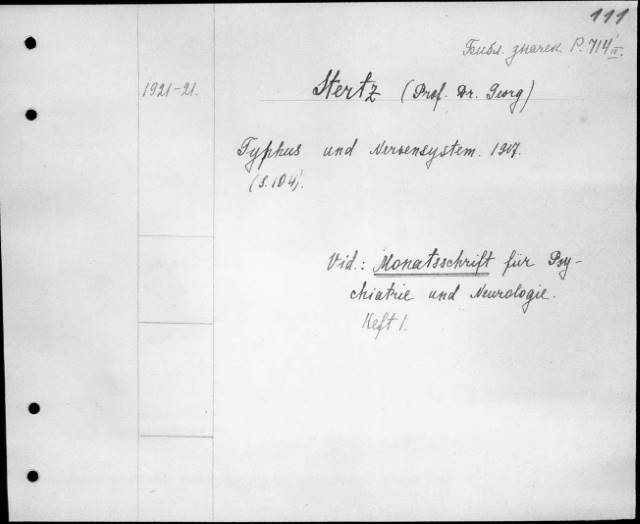 111
Библ. значек P. 714/IV.
1921-21.
Stertz (Prof. Dr. Georg)
Typhus und Nervensystem. 1917.
(S. 104).
Vid.: Monatsschrift für Psy-
chiatrie und Neurologie.
Heft 1.